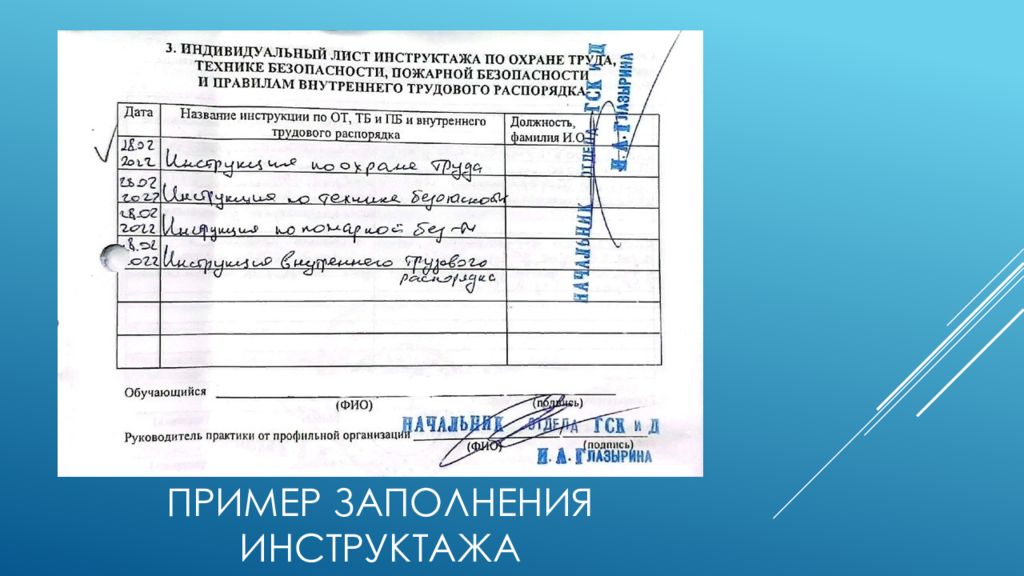 3. ИНДИВИДУАЛЬНЫЙ ЛИСТ ИНСТРУКТАЖА ПО ОХРАНЕ ТРУДА,
ТЕХНИКЕ БЕЗОПАСНОСТИ, ПОЖАРНОЙ БЕЗОПАСНОСТИ
И ПРАВИЛАМ ВНУТРЕННЕГО ТРУДОВОГО РАСПОРЯДКА
Дата
Название инструкции по ОТ, ТБ и ПБ и внутреннего
трудового распорядка
Должность,
фамилия И.О.
28.02
2022
Инструкция по охране труда
28.02
2022
Инструкция по технике безопасности
28.02
2022
Инструкция по пожарной без-ти
8.02
022
Инструкция внутреннего трудового
распорядка
НАЧАЛЬНИК ОТДЕЛА ГСК и Д
И. А. ГЛАЗЫРИНА
Обучающийся
(ФИО) (подпись)
Руководитель практики от профильной организации
НАЧАЛЬНИК ОТДЕЛА ГСК и Д
(ФИО) (подпись)
И. А. ГЛАЗЫРИНА
ПРИМЕР ЗАПОЛНЕНИЯ
ИНСТРУКТАЖА